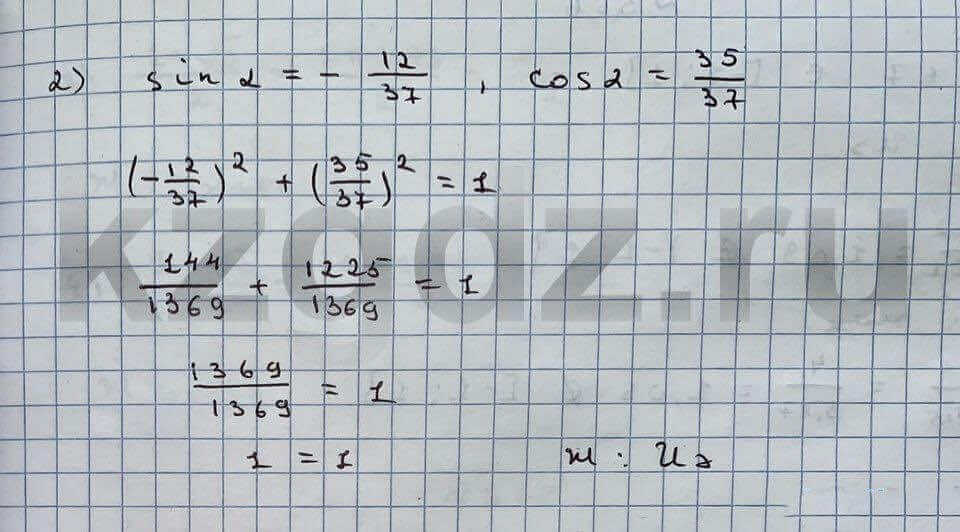 2) sin α = - 12/37 , cos α = 35/37
(- 12/37)² + (35/37)² = 1
144/1369 + 1225/1369 = 1
1369/1369 = 1
1 = 1 ж : Иә
kzgdz.ru